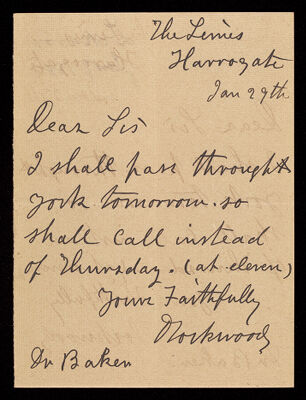 The Limes
Harrogate
Jan 29th
Dear Sir
I shall pass through
York tomorrow. so
shall call instead
of Thursday. (at eleven)
Yours Faithfully
Dr Baker